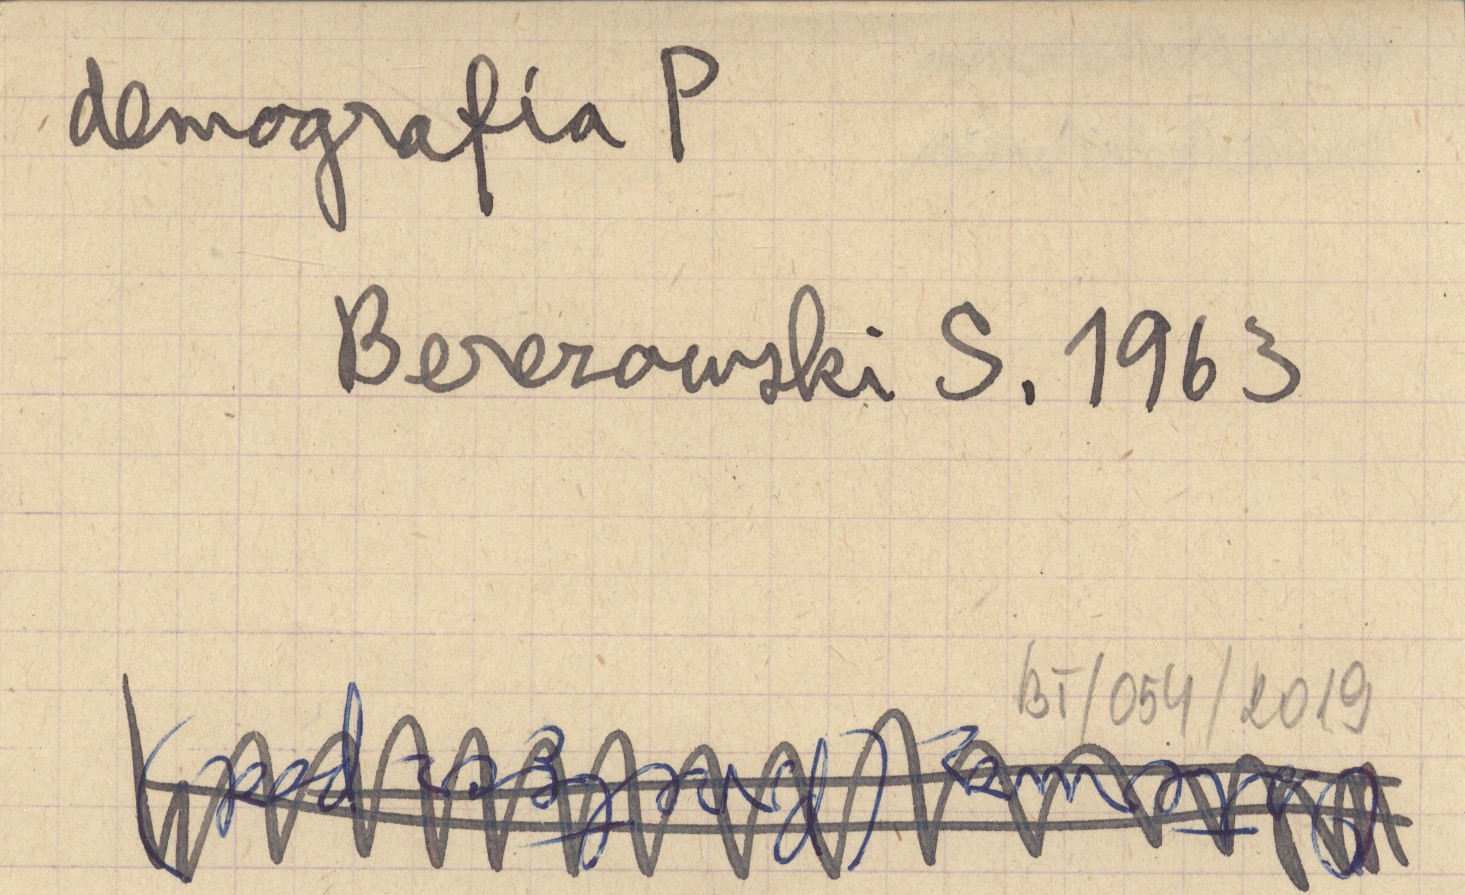 demografia P
Berezowski S. 1963
BT/054/2019